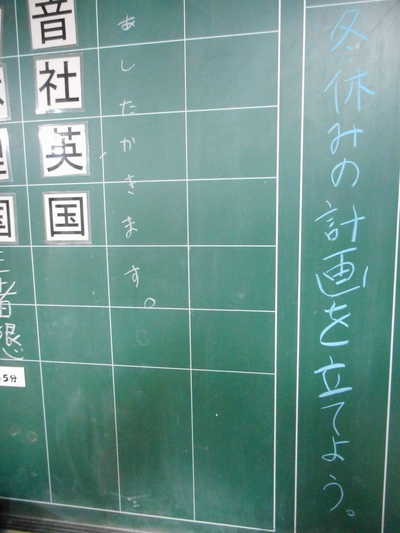 冬休みの計画を立てよう。
あしたかきます。
音
社
英
国
国
者
懇
5分